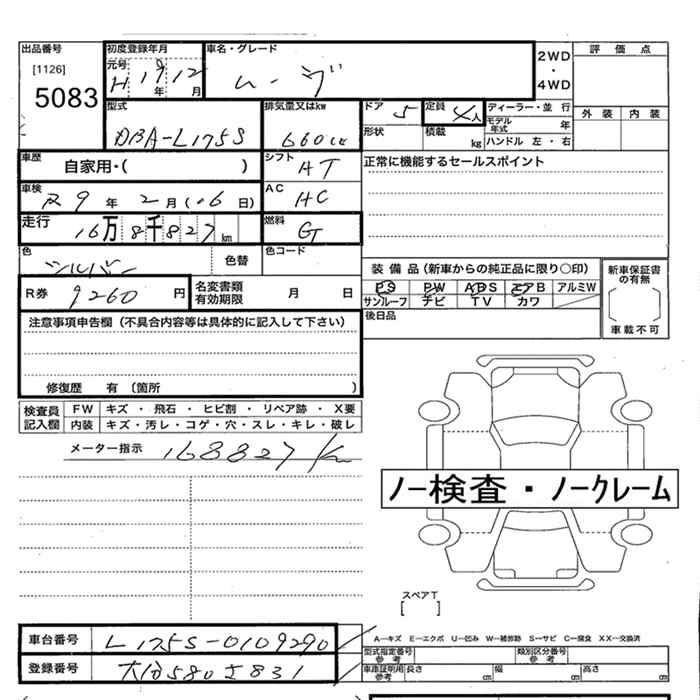 出品番号 初度登録年月 車名・グレード 2WD・4WD 評価点
[1126] 元号 H 19年 12月 ムーヴ
5083 外装 内装
型式 排気量又はkw ドア 5 定員 4人 ディーラー・並行
DBA-L175S 660cc 形状 積載 kg モデル年式 年
ハンドル 左・右
車歴 自家用・( ) シフト AT 正常に機能するセールスポイント
車検 R9年2月(06日) AC AC
走行 16万8千827km 燃料 G
色 シルバー 色替 色コード
装備品(新車からの純正品に限り○印) 新車保証書の有無
R券 9260円 名変書類有効期限 月 日 PS PW ABS エアB アルミW
サンルーフ ナビ TV カワ 車載不可
注意事項申告欄(不具合内容等は具体的に記入して下さい) 後日品
修復歴 有(箇所 )
検査員記入欄 FW キズ・飛石・ヒビ割・リペア跡・X要
内装 キズ・汚レ・コゲ・穴・スレ・キレ・破レ
メーター指示 168827km
ノー検査・ノークレーム
スペアT
[ ]
車台番号 L175S-0109290 A―キズ E―エクボ U―凹み W―補修跡 S―サビ C―腐食 XX―交換済
型式指定番号 参考 類別区分番号 参考
登録番号 大分580さ831 車庫証明用 参考 長さ cm 幅 cm 高さ cm